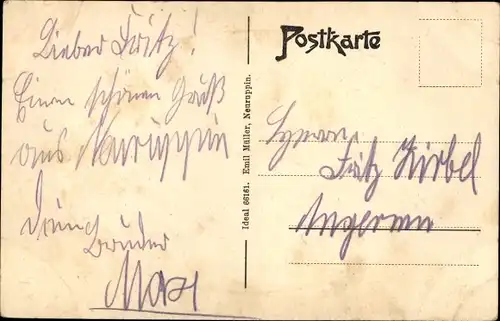 Lieber Fritz!
Einen schönen Gruß
aus Neuruppin
Dein
Bruder
Max
Ideal 66161. Emil Müller, Neuruppin.
Postkarte
Herrn
Fritz Kirbel